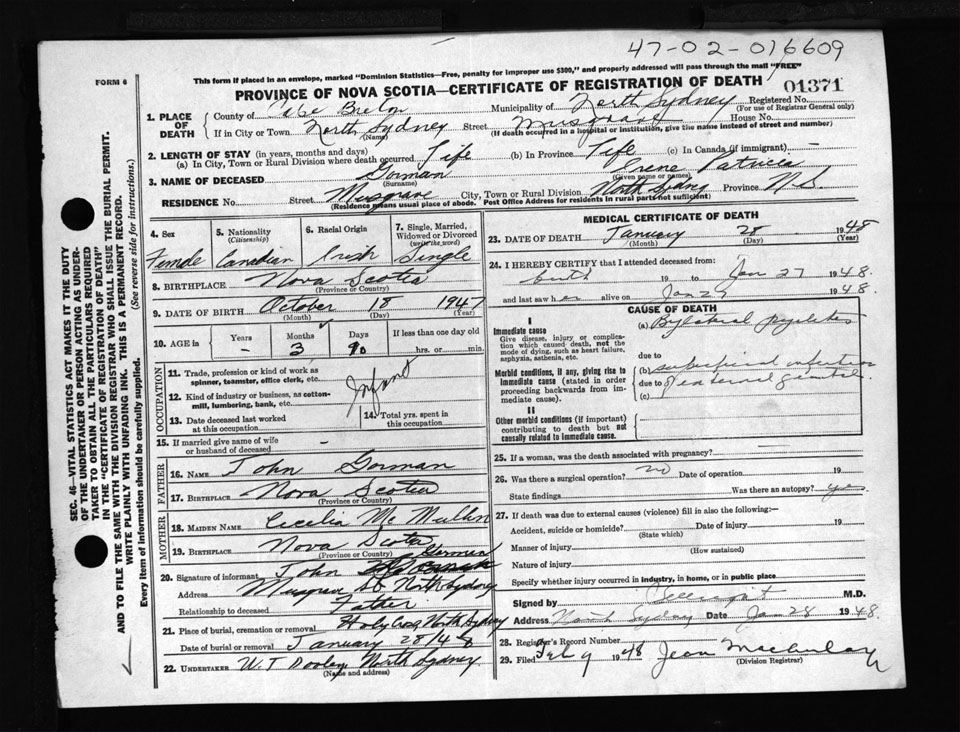 47-02-016609
This form if placed in an envelope, marked "Dominion Statistics—Free, penalty for improper use $300," and properly addressed will pass through the mail "FREE"
FORM 6
PROVINCE OF NOVA SCOTIA—CERTIFICATE OF REGISTRATION OF DEATH
01371
1. PLACE OF DEATH
County of Cape Breton Municipality of North Sydney Registered No.
(For use of Registrar General only)
If in City or Town North Sydney Street Musgrave House No.
(Name) (If death occurred in a hospital or institution, give the name instead of street and number)
2. LENGTH OF STAY (in years, months and days)
(a) In City, Town or Rural Division where death occurred Life (b) In Province Life (c) In Canada (if immigrant) —
3. NAME OF DECEASED Gorman Irene Patricia
(Surname) (Given name or names)
RESIDENCE No. Street Musgrave City, Town or Rural Division North Sydney Province N S.
(Residence means usual place of abode. Post Office Address for residents in rural parts not sufficient)
4. Sex
Female
5. Nationality
(Citizenship)
Canadian
6. Racial Origin
Irish
7. Single, Married, Widowed or Divorced
(write the word)
Single
8. BIRTHPLACE Nova Scotia
(Province or Country)
9. DATE OF BIRTH October 18 1947
(Month) (Day) (Year)
10. AGE in Years Months Days If less than one day old
- 3 10 hrs. or min.
OCCUPATION
11. Trade, profession or kind of work as spinner, teamster, office clerk, etc.
Infant
12. Kind of industry or business, as cotton-mill, lumbering, bank, etc.
13. Date deceased last worked at this occupation
14. Total yrs. spent in this occupation
15. If married give name of wife or husband of deceased -
FATHER
16. NAME John Gorman
17. BIRTHPLACE Nova Scotia
(Province or Country)
MOTHER
18. MAIDEN NAME Cecelia Mc Mullin
19. BIRTHPLACE Nova Scotia
(Province or Country)
20. Signature of informant John Gorman
Address Musgrave St North Sydney
Relationship to deceased Father
21. Place of burial, cremation or removal Holy Cross North Sydney
Date of burial or removal January 28/48
22. UNDERTAKER W.T Dooley North Sydney
(Name and Address)
MEDICAL CERTIFICATE OF DEATH
23. DATE OF DEATH January 28 1948
(Month) (Day) (Year)
24. I HEREBY CERTIFY that I attended deceased from:
birth 19 to Jan 27 1948.
and last saw her alive on Jan 27 1948.
CAUSE OF DEATH
I
Immediate cause
Give disease, injury or complication which caused death, not the mode of dying, such as heart failure, asphyxia, asthenia, etc.
(a) Bylateral pyelitis
due to
Morbid conditions, if any, giving rise to immediate cause (stated in order proceeding backwards from immediate cause).
(b) superficial infection
due to of external genital
(c)
II
Other morbid conditions (if important) contributing to death but not causally related to immediate cause.
25. If a woman, was the death associated with pregnancy?
26. Was there a surgical operation? no Date of operation 19
State findings Was there an autopsy? yes
27. If death was due to external causes (violence) fill in also the following:—
Accident, suicide or homicide? Date of injury 19
(State which)
Manner of injury
(How sustained)
Nature of injury
Specify whether injury occurred in industry, in home, or in public place
Signed by M.D.
Address North Sydney Date Jan 28 1948.
28. Registrar's Record Number
29. Filed Feb 9 1948 Jean
(Division Registrar)
SEC. 46—VITAL STATISTICS ACT MAKES IT THE DUTY
OF THE UNDERTAKER OR PERSON ACTING AS UNDERTAKER TO OBTAIN ALL THE PARTICULARS REQUIRED
IN THE "CERTIFICATE OF REGISTRATION OF DEATH"
AND TO FILE THE SAME WITH THE DIVISION REGISTRAR WHO SHALL ISSUE THE BURIAL PERMIT.
WRITE PLAINLY WITH UNFADING INK. THIS IS A PERMANENT RECORD.
Every item of information should be carefully supplied. (See reverse side for instructions.)